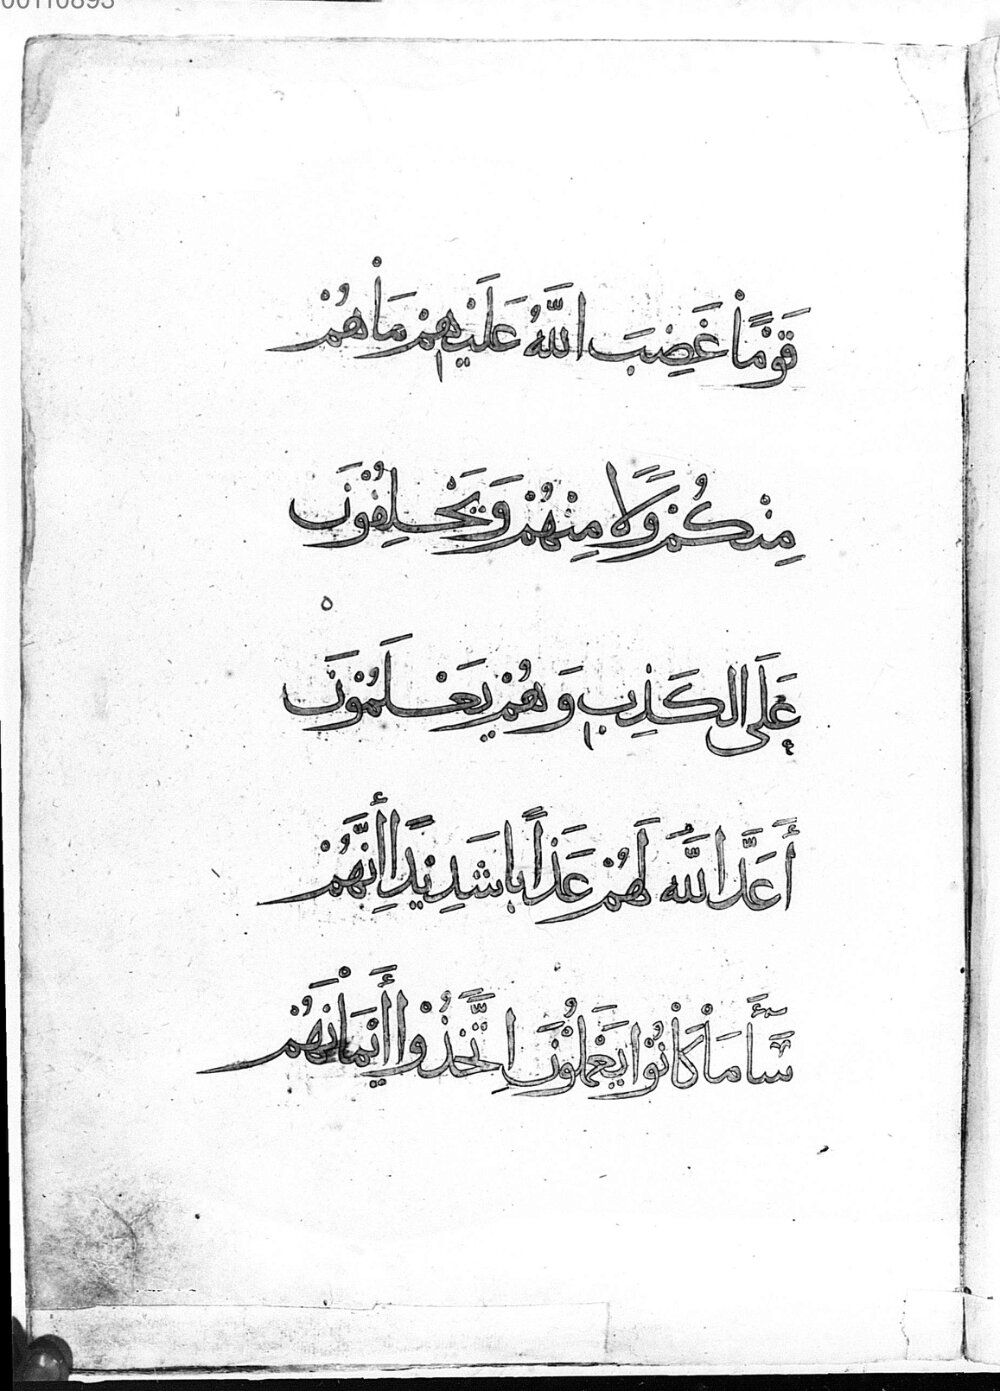 00110893
قَوْمًا غَضِبَ اللَّهُ عَلَيْهِمْ مَا هُمْ
مِنْكُمْ وَلَا مِنْهُمْ وَيَحْلِفُونَ
عَلَى الْكَذِبِ وَهُمْ يَعْلَمُونَ
أَعَدَّ اللَّهُ لَهُمْ عَذَابًا شَدِيدًا إِنَّهُمْ
سَاءَ مَا كَانُوا يَعْمَلُونَ اتَّخَذُوا أَيْمَانَهُمْ